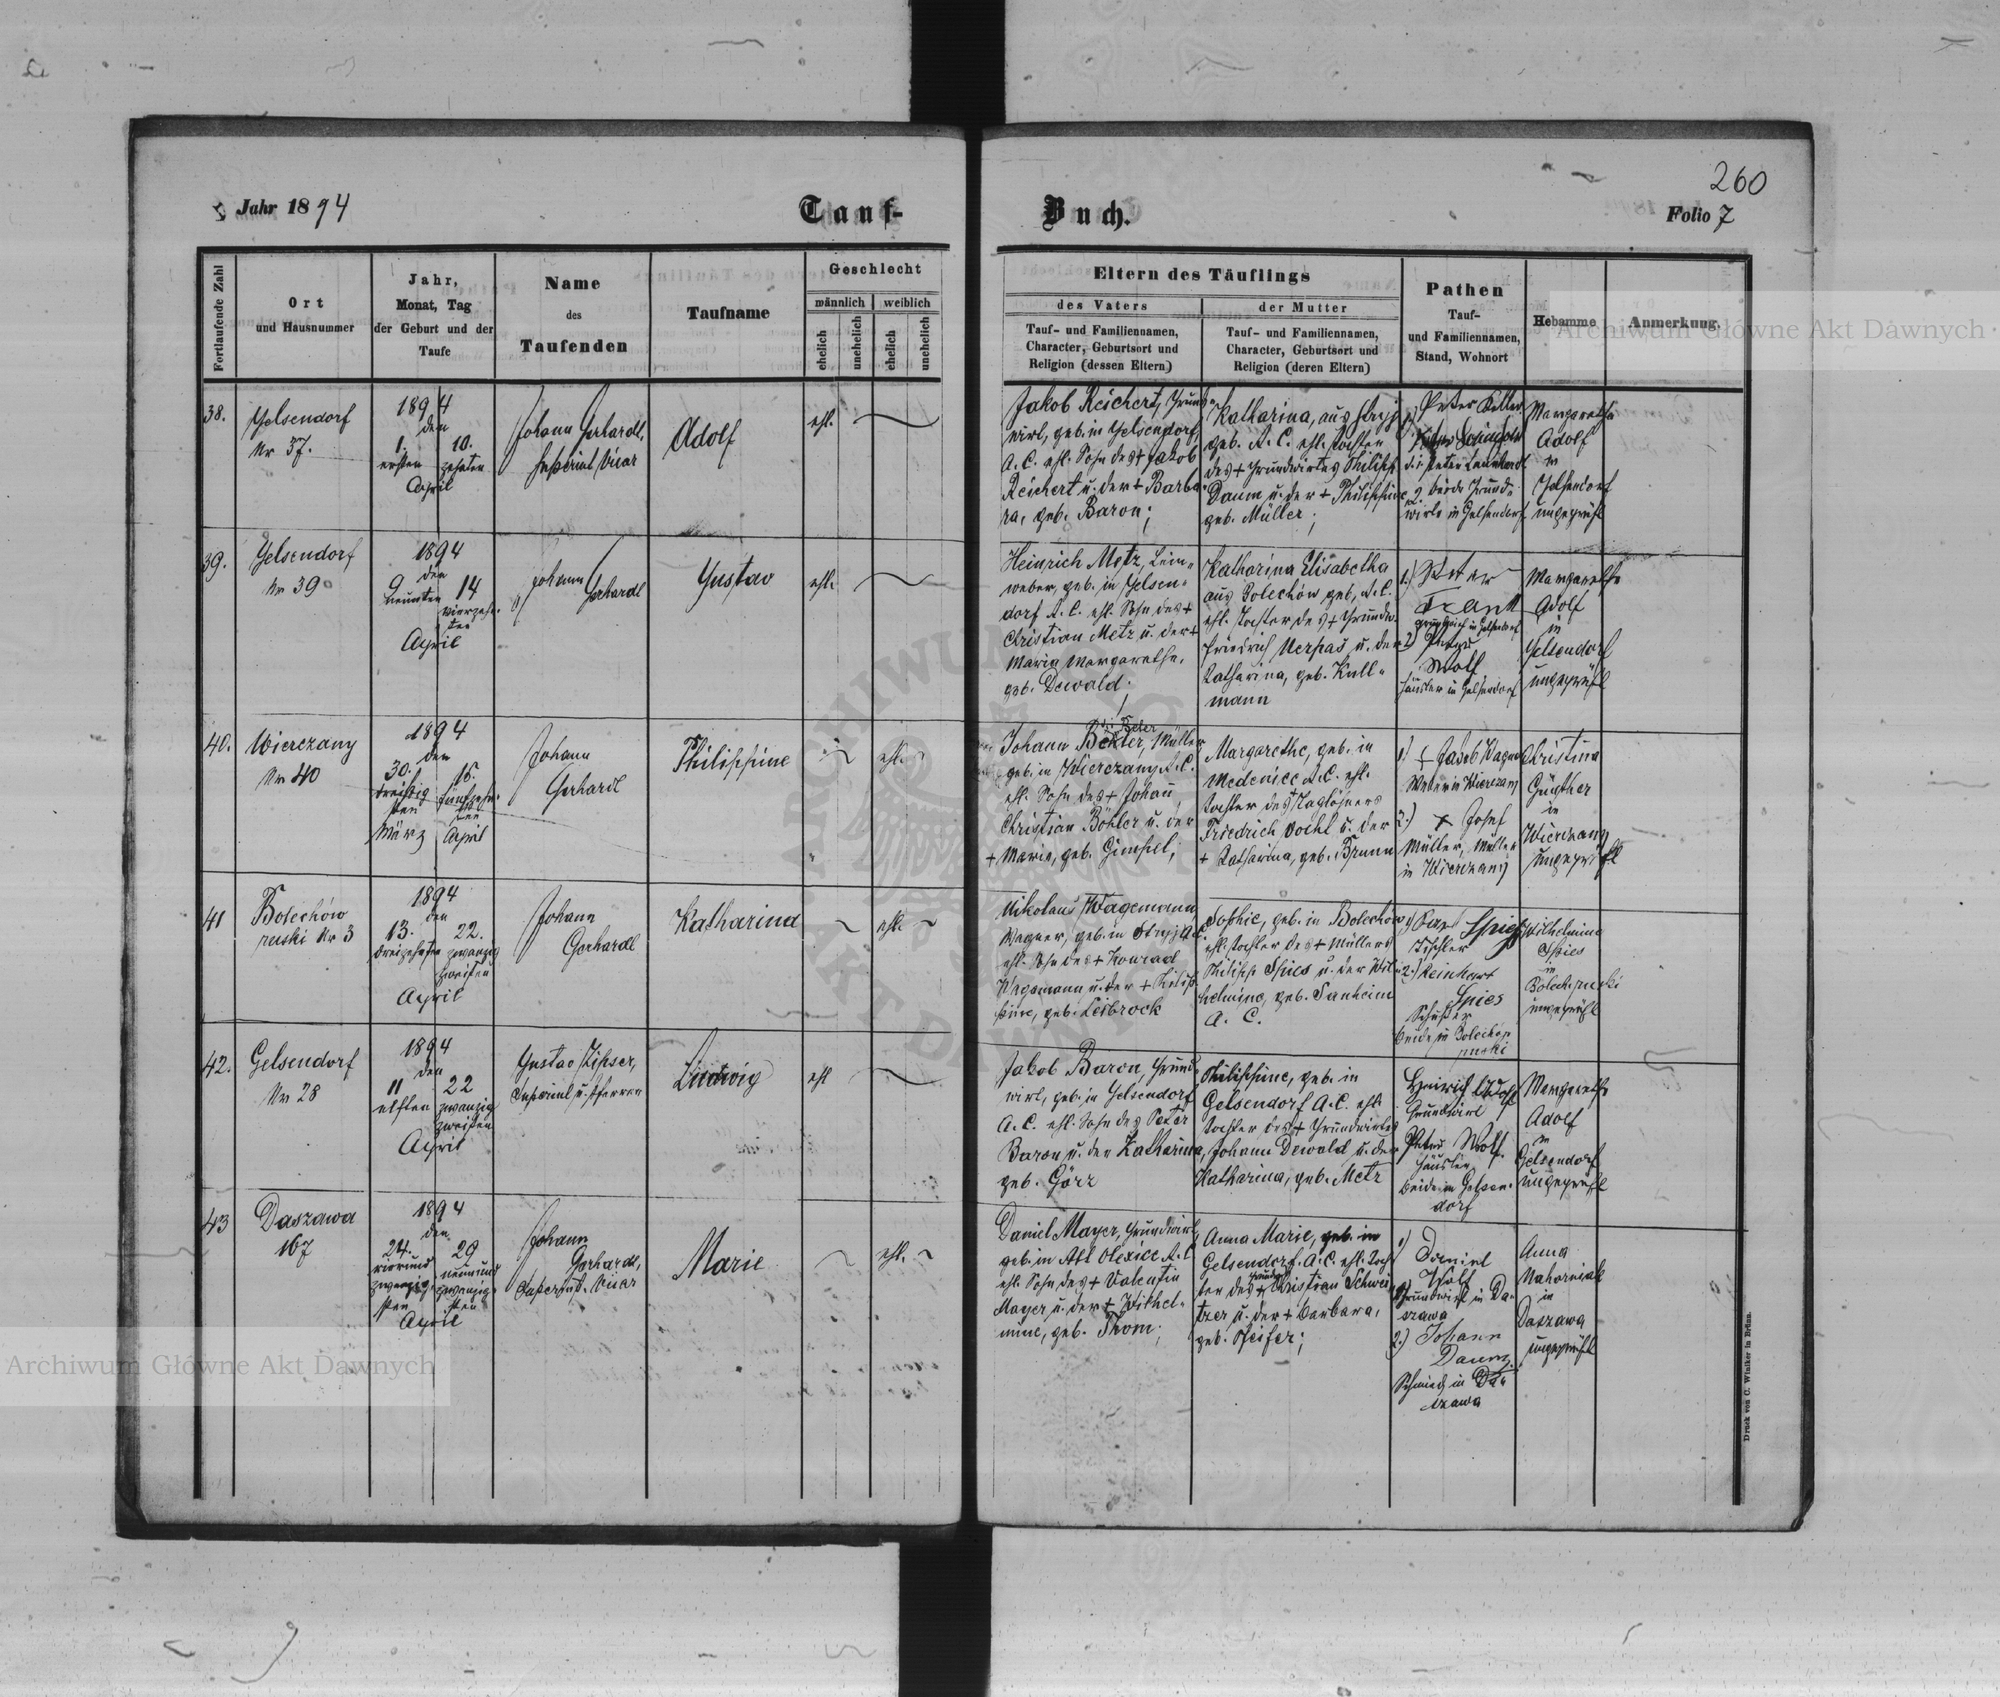 260
Jahr 1894
Tauf-
Buch.
Folio 7
Fortlaufende Zahl
Ort
und Hausnummer
Jahr,
Monat, Tag
der Geburt und der
Taufe
Name
des
Taufenden
Taufname
Geschlecht
männlich
weiblich
ehelich
unehelich
ehelich
unehelich
Eltern des Täuflings
des Vaters
Tauf- und Familiennamen,
Character, Geburtsort und
Religion (dessen Eltern)
der Mutter
Tauf- und Familiennamen,
Character, Geburtsort und
Religion (deren Eltern)
Pathen
Tauf-
und Familiennamen,
Stand, Wohnort
Hebamme
Anmerkung.
38.
Gelsendorf
Nr 37.
1894
den
1. 10.
ersten zehnten
April
Johann Gerhardt,
Adolf
ehl.
Jakob Reichert, Grund-
wirt, geb. in Gelsendorf,
A. C. ehl. Sohn des + Jakob
Reichert u. der + Barba-
ra, geb. Baron;
Katharina, aus Stryj
geb. A. C. ehl. Tochter
des + Grundwirtes Philipp
Daum u. der + Philippine
geb. Müller;
Peter Keller
2. beide Grund-
wirte in Gelsendorf
Margarethe
Adolf
in
Gelsendorf
ungeprüft
39.
Gelsendorf
Nr 39
1894
den
9 14
neunten vierzehn-
ten
April
Johann
Gerhardt
Gustav
ehl.
Heinrich Metz, Lein-
weber, geb. in Gelsen-
dorf A. C. ehl. Sohn des +
Christian Metz u. der +
Maria Margarethe,
geb. Dewald;
Katharina Elisabetha
aus Bolechów geb. A. C.
ehl. Tochter des + Grundw.
Friedrich u. der
Katharina, geb. Kull-
mann
1.) Peter
Frank
Grundwirth in Gelsendorf
2.) Peter
Wolf
Häusler in Gelsendorf
Margarethe
Adolf
in
Gelsendorf
ungeprüft
40.
Wierczany
Nr 40
1894
den
30. 15.
dreißig- fünfzehn-
sten ten
März April
Johann
Gerhardt
Philippine
ehl.
Johann Bekler, Müller
geb. in Wierczany A. C.
ehl. Sohn des + Johann
Christian Böhler u. der
+ Marie, geb. Gimpel;
Margarethe, geb. in
Medenice A. C. ehl.
Tochter des + Taglöhners
Friedrich u. der
+ Katharina, geb. Brunn
1.) + Jakob Wagner
Weber in Wierczany
2.) + Josef
Müller, Müller
in Wierczany
Christina
Günther
in
Wierczany
ungeprüft
41
Bolechów
ruski Nr 3
1894
den
13. 22.
dreizehnten zwanzig
zweiten
April
Johann
Gerhardt
Katharina
ehl.
Nikolaus Wagemann,
Wagner, geb. in Stryj A. C.
ehl. Sohn des + Konrad
Wagemann u. der + Philip-
pine, geb. Leibrock
Sophie, geb. in Bolechów
ehl. Tochter des + Müllers
Philipp Spies u. der Wil-
helmine, geb. Tanheim
A. C.
Spies
Tischler
2.) Reinhart
Spies
Schuster
beide in Bolechów
ruski
Wilhelmina
Spies
in
Bolech. ruski
ungeprüft
42.
Gelsendorf
Nr 28
1894
den
11 22
elften zwanzig
zweiten
April
Gustav Zipser,
Superint. u. Pfarrer
Ludwig
ehl
Jakob Baron, Grund-
wirt, geb. in Gelsendorf
A. C. ehl. Sohn des Peter
Baron u. der Katharina,
geb. Görz
Philippine, geb. in
Gelsendorf A. C. ehl.
Tochter des + Grundwirtes
Johann Dewald u. der
Katharina, geb. Metz
Heinrich
Grundwirt
Peter Wolf.
Häusler
beide in Gelsen-
dorf
Margarethe
Adolf
in
Gelsendorf
ungeprüft
43
Daszawa
167
1894
den
24. 29
vierund neunund
zwanzig- zwanzig-
sten sten
April
Johann
Gerhardt,
Superint. Vicar
Marie
ehl.
Daniel Mayer, Grundwirt,
geb. in Alt Olexice A. C.
ehl. Sohn des + Valentin
Mayer u. der + Wilhel-
mine, geb. Thom;
Anna Marie, geb. in
Gelsendorf A. C. ehl. Toch-
ter des + Christian Schwei-
tzer u. der + Barbara,
geb. Pfeifer;
1) Daniel
Wolf
Grundwirt in Da-
szawa
2.) Johann
Daum,
Schmied in Da-
szawa
Anna
Mahorniak
in
Daszawa
ungeprüft
Druck von C. Winiker in Brünn.
Archiwum Główne Akt Dawnych
Archiwum Główne Akt Dawnych